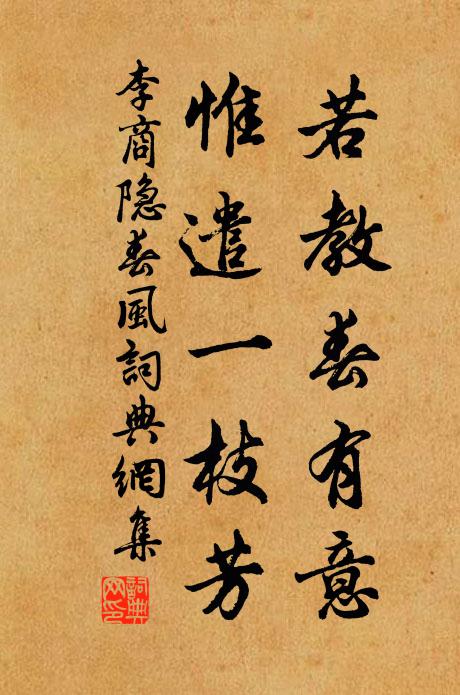 若教春有意
惟遣一枝芳
李商隐春風詞典網集
詞典网印